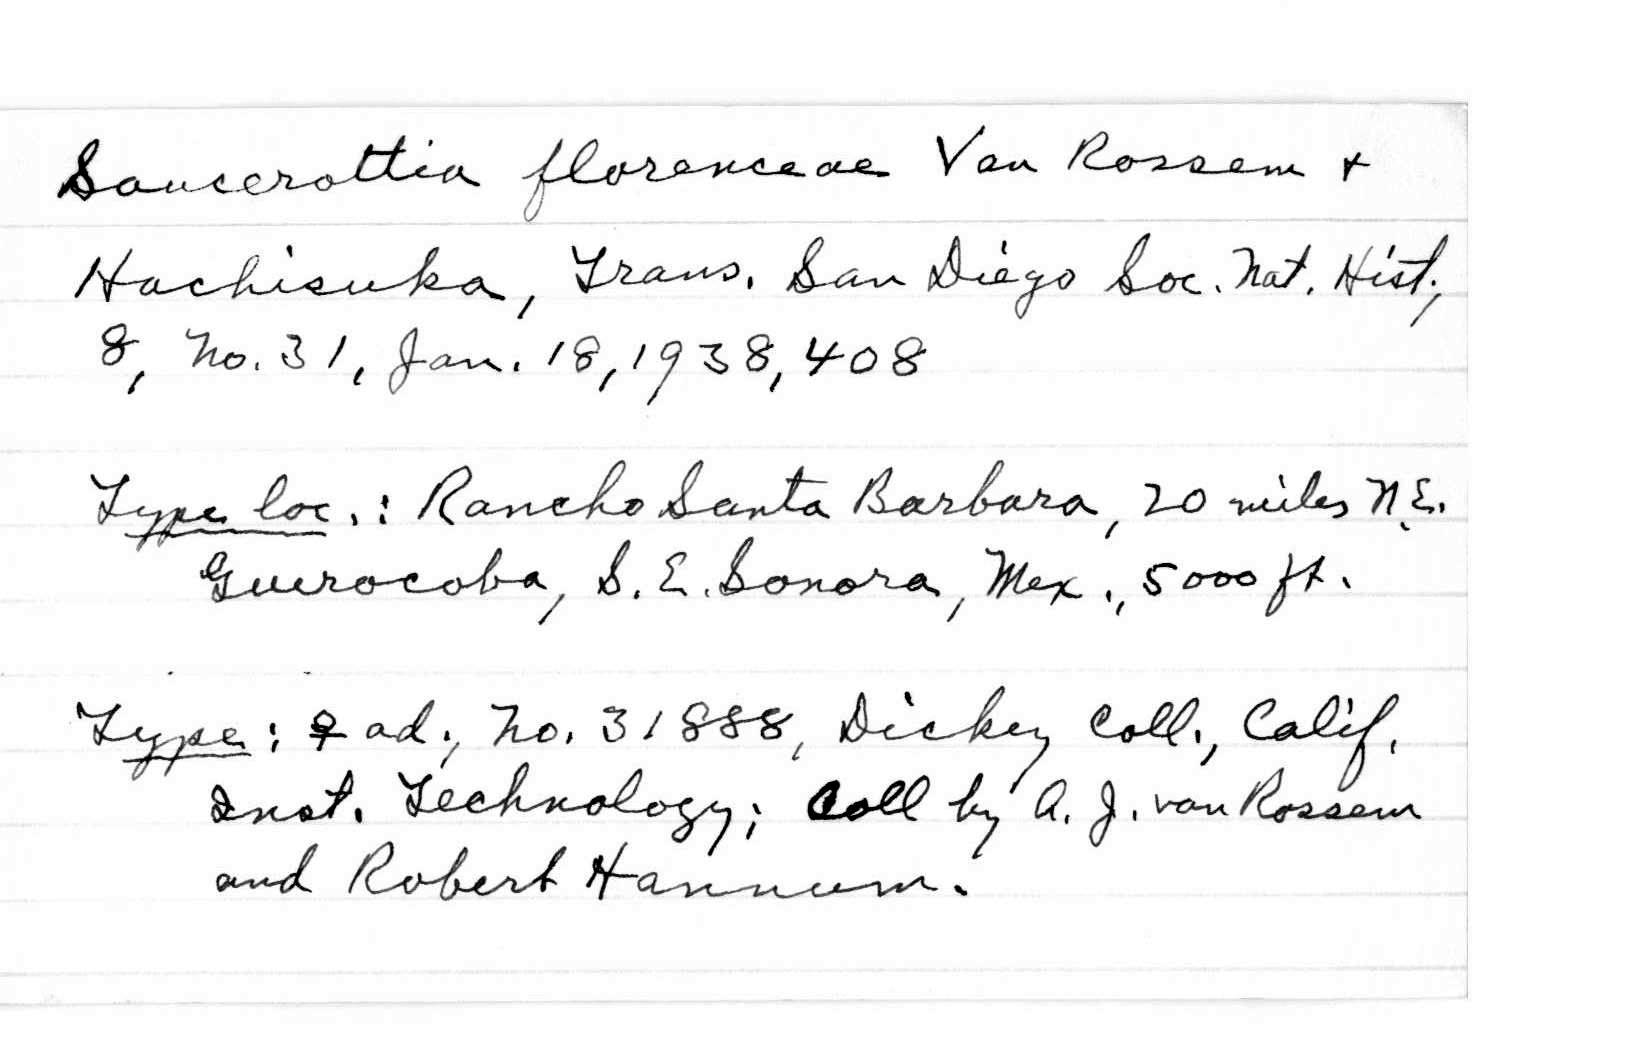 Saucerottia florenceae Van Rossem +
Hachisuka, Trans. San Diego Soc. Nat. Hist.,
8, No. 31, Jan. 18, 1938, 408
Type loc.: Rancho Santa Barbara, 20 miles N.E.
Guirocoba, S.E. Sonora, Mex., 5000 ft.
Type: ♀ ad., No. 31888, Dickey Coll., Calif.
Inst. Technology; Coll by A. J. van Rossem
and Robert Hannum.